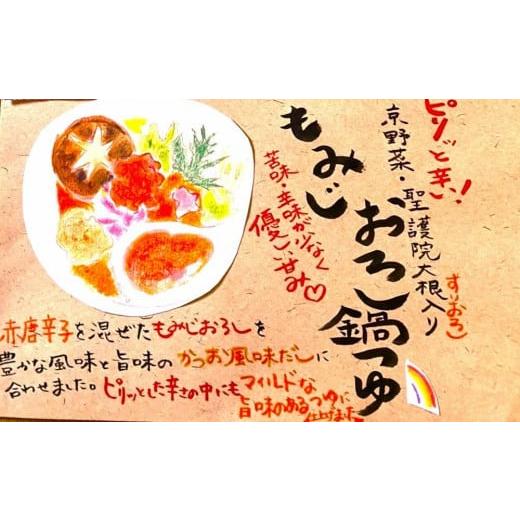 ピリッと辛い!
京野菜・聖護院大根入り
すりおろし
もみじ
おろし鍋つゆ
苦味・辛味が少なく
優しい甘み♡
赤唐辛子を混ぜたもみじおろしを
豊かな風味と旨味のかつお風味だしに
合わせました。ピリッとした辛さの中にも
マイルドな
旨味のあるつゆに
仕上げました